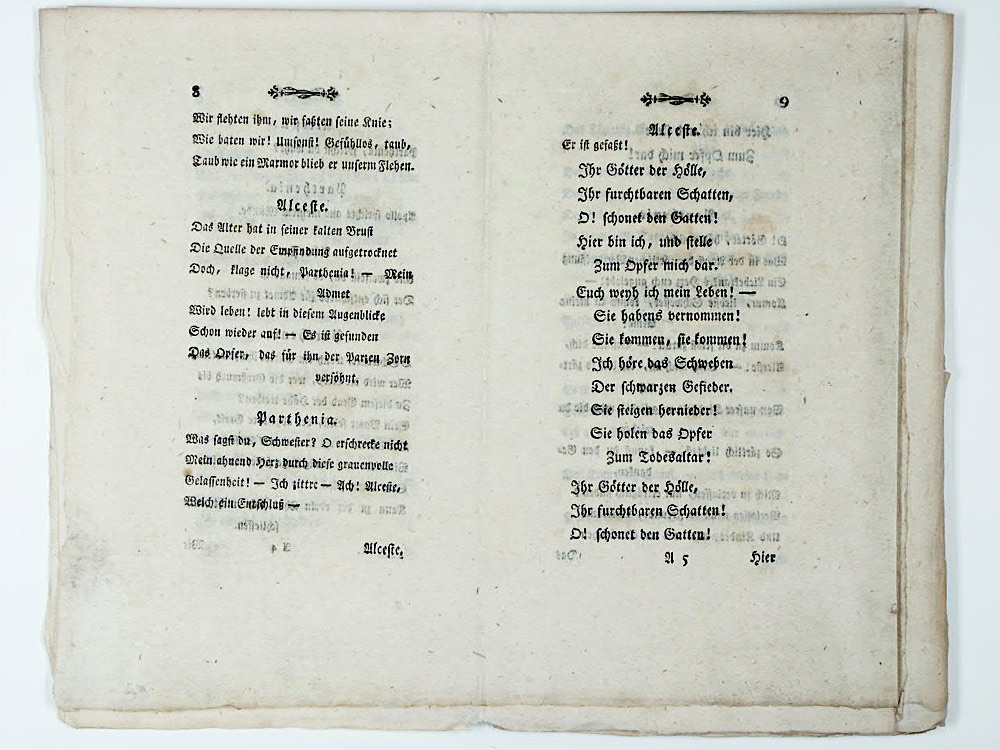 8
Wir flehten ihm, wir faßten seine Knie;
Wie baten wir! Umsonst! Gefühllos, taub,
Taub wie ein Marmor blieb er unserm Flehen.
Alceste.
Das Alter hat in seiner kalten Brust
Die Quelle der Empfindung aufgetrocknet
Doch, klage nicht, Parthenia! — Mein
Admet
Wird leben! lebt in diesem Augenblicke
Schon wieder auf! — Es ist gefunden
Das Opfer, das für ihn der Parzen Zorn
versöhnt.
Parthenia.
Was sagst du, Schwester? O erschrecke nicht
Mein ahnend Herz durch diese grauenvolle
Gelassenheit! — Ich zittre — Ach! Alceste,
Welch ein Entschluß —
Alceste.
9
Alceste.
Er ist gefaßt!
Ihr Götter der Hölle,
Ihr furchtbaren Schatten,
O! schonet den Gatten!
Hier bin ich, und stelle
Zum Opfer mich dar.
Euch weyh ich mein Leben! —
Sie habens vernommen!
Sie kommen, sie kommen!
Ich höre das Schweben
Der schwarzen Gefieder.
Sie steigen hernieder!
Sie holen das Opfer
Zum Todesaltar!
Ihr Götter der Hölle,
Ihr furchtbaren Schatten!
O! schonet den Gatten!
A 5 Hier